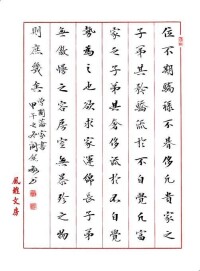 位不期驕祿不期侈凡貴家之
子弟其矜驕流於不自覺凡富
家之子弟其奢侈流於不自覺
勢為之也欲求家運綿長子弟
無傲慢之容房室無暴殄之物
則庶幾矣
曾國藩家書
甲午
風雅文房